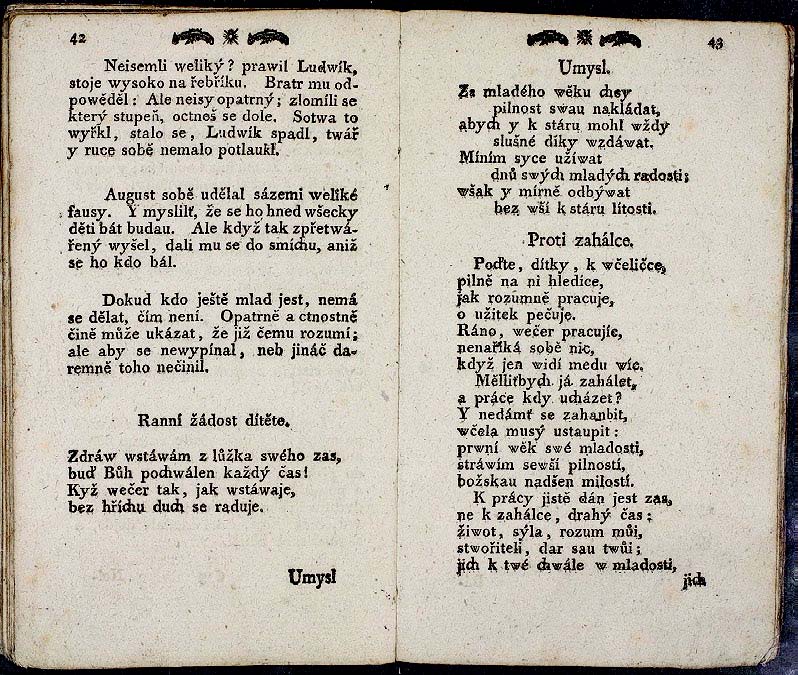 42
Neisemli weliký? prawil Ludwík,
stoje wysoko na řebříku. Bratr mu od-
powěděl: Ale neisy opatrný; zlomíli se
který stupeň, octneš se dole. Sotwa to
wyřkl, stalo se, Ludwík spadl, twář
y ruce sobě nemalo potlaukl.
August sobě udělal sázemi weliké
fausy. Y myslilť, že se ho hned wšecky
děti bát budau. Ale když tak zpřetwá-
řený wyšel, dali mu se do smíchu, aniž
se ho kdo bál.
Dokud kdo ještě mlad jest, nemá
se dělat, čím není. Opatrně a ctnostně
čině může ukázat, že již čemu rozumí;
ale aby se newypínal, neb jináč da-
remně toho nečinil.
Ranní žádost dítěte.
Zdráw wstáwám z lůžka swého zas,
buď Bůh pochwálen každý čas!
Kyž wečer tak, jak wstáwaje,
bez hříchu duch se raduje.
Umysl
43
Umysl.
Za mladého wěku chcy
pilnost swau nakládat,
abych y k stáru mohl wždy
slušné díky wzdáwat.
Míním syce užíwat
dnů swých mladých radosti;
wšak y mírně odbýwat
bez wší k stáru lítosti.
Proti zahálce.
Poďte, dítky, k wčeličce,
pilně na ni hledíce,
jak rozumně pracuje,
o užitek pečuje.
Ráno, wečer pracujíc,
nenaříká sobě nic,
když jen widí medu wíc.
Mělliťbych já zahálet,
a práce kdy ucházet?
Y nedámť se zahanbit,
wčela musý ustaupit:
prwní wěk swé mladosti,
stráwím sewší pilností,
božskau nadšen milostí.
K prácy jistě dán jest zas,
ne k zahálce, drahý čas:
žiwot, sýla, rozum můi,
stwořiteli, dar sau twůi;
jich k twé chwále w mladosti,
jich